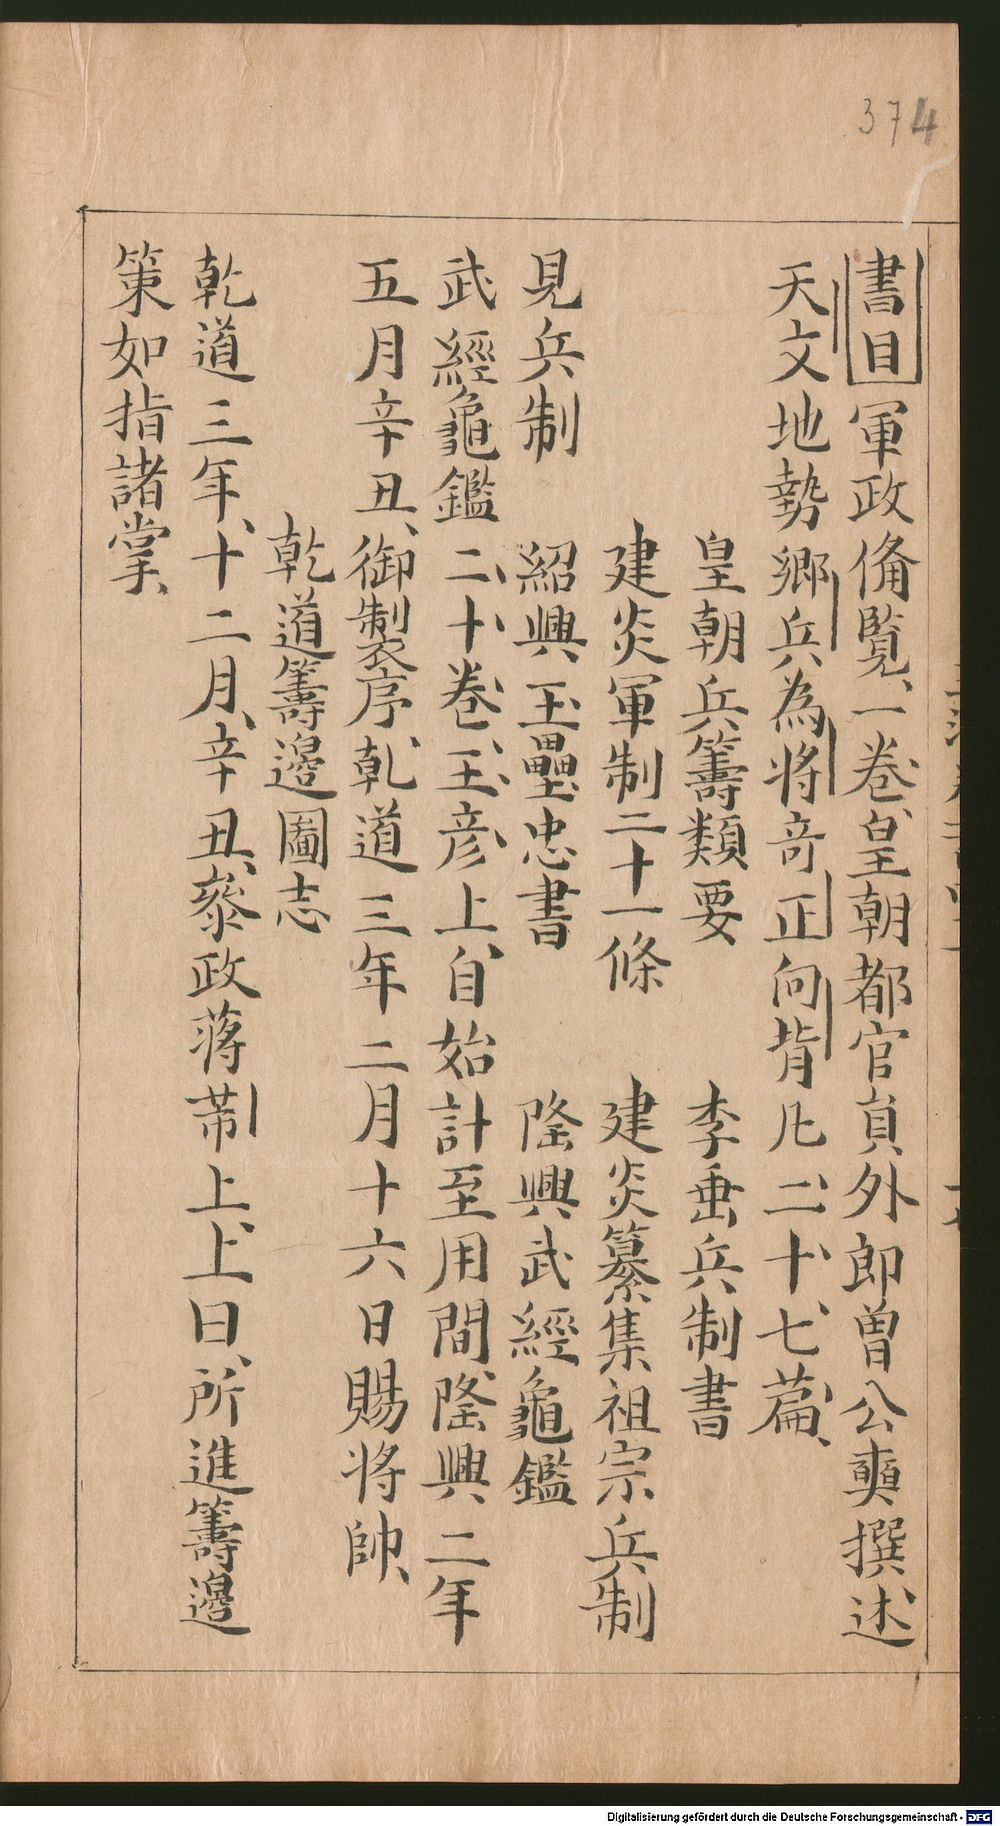 374
書目軍政備覧、一卷、皇朝都官員外郎曾公奭撰述、
天文地勢鄉兵為将奇正向背凡二十七篇、
皇朝兵籌類要　李垂兵制書
建炎軍制二十一條　建炎纂集祖宗兵制
見兵制　紹興玉壘忠書　隆興武經龜鑑
武經龜鑑二十卷、王彦上、自始計至用間、隆興二年
五月辛丑、御製序、乾道三年二月十六日賜将帥、
乾道籌邊圖志
乾道三年、十二月、辛丑、叅政蒋芾上、上曰、所進籌邊
策如指諸掌、
Digitalisierung gefördert durch die Deutsche Forschungsgemeinschaft - DFG